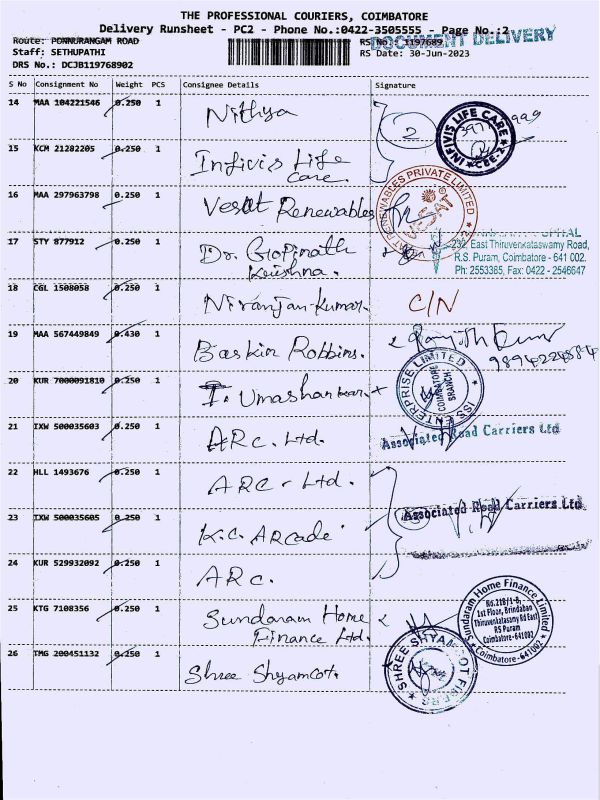 THE PROFESSIONAL COURIERS, COIMBATORE
Delivery Runsheet - PC2 - Phone No.:0422-3505555 - Page No.:2
Route: PONNURANGAM ROAD
RS No.: 1197689
DOCUMENT DELIVERY
Staff: SETHUPATHI
RS Date: 30-Jun-2023
DRS No.: DCJB119768902
S No Consignment No Weight PCS Consignee Details Signature
14 MAA 104221546 0.250 1 Nithya 2
INFIVIS LIFE CARE CBE-2
15 KCM 21282205 0.250 1 Infivis Life Care.
16 MAA 297963798 0.250 1 Vesat Renewables
RENEWABLES PRIVATE LIMITED VESAT
17 STY 877912 0.250 1 Dr. Gopinath Krishna.
232, East Thiruvenkataswamy Road,
R.S. Puram, Coimbatore - 641 002.
Ph: 2553365, Fax: 0422 - 2546647
18 CGL 1508058 0.250 1 Niranjan Kumar. C/N
19 MAA 567449849 0.430 1 Baskin Robbins.
20 KUR 7000091810 0.250 1 I. Umashankar.
ISS ENTERPRISE LIMITED COIMBATORE BRANCH
21 IXW 500035603 0.250 1 ARC. Ltd.
Associated Road Carriers Ltd
22 HLL 1493676 0.250 1 ARC. Ltd.
Associated Road Carriers Ltd
23 IXW 500035605 0.250 1 K.C. ARcade
24 KUR 529932092 0.250 1 ARC.
25 KTG 7108356 0.250 1 Sundaram Home Finance Ltd.
Sundaram Home Finance Limited
No.218/1-8,
1st Floor, Brindaban
Thiruvenkatasamy Rd East
RS Puram
Coimbatore-641002
Coimbatore-641002
26 TMG 200451132 0.250 1 Shree Shyamcot.
SHREE SHYAM COT FIBERS